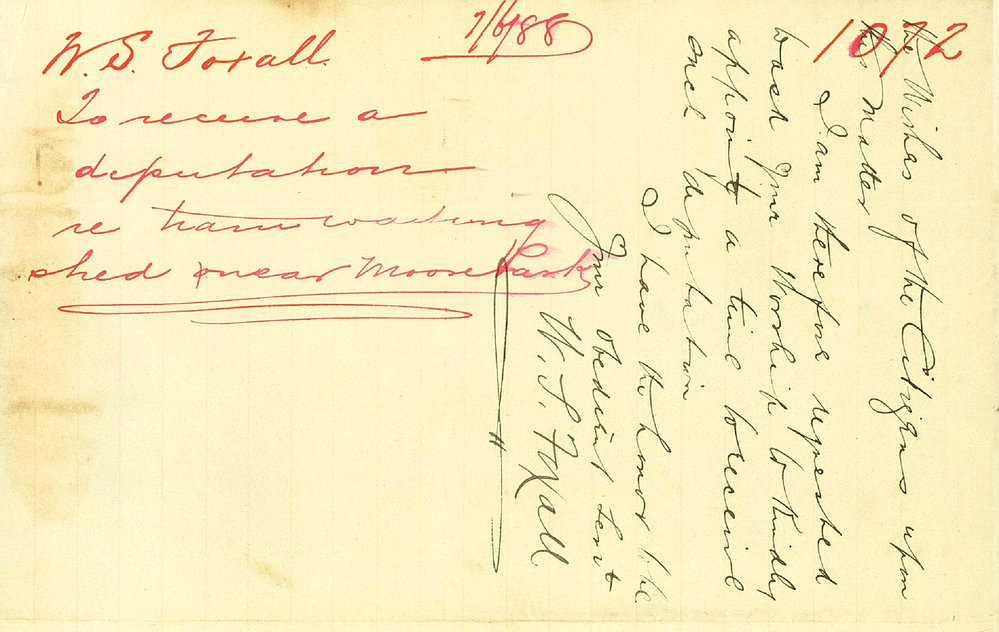 7/6/88
1072
W. S. Foxall.
To receive a
deputation
re tram waiting
shed near Moore Park
the Wishes of the Citizens upon
this Matter
I am therefore requested
Your Worship to Kindly
appoint a time to receive
such deputation
I have the honor to be
Your obedient Servt
W. S. Foxall